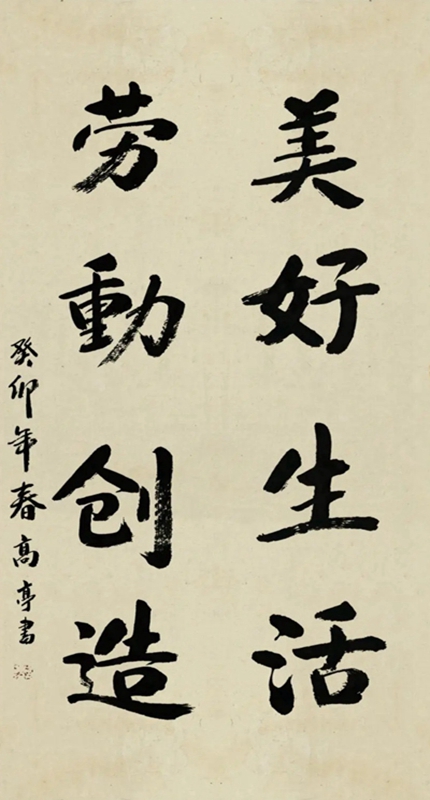 美好生活
劳動创造
癸卯年春高亭書